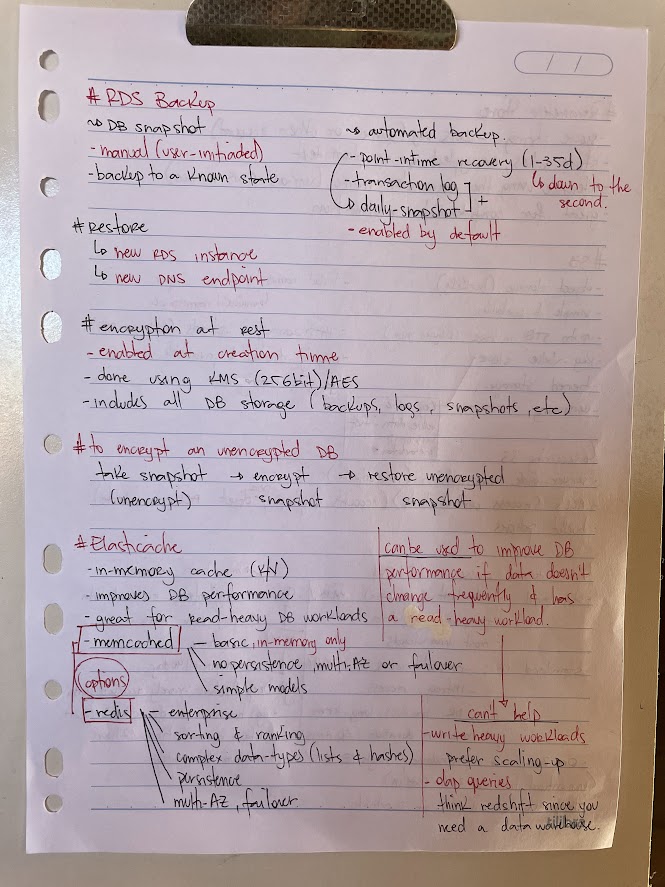 # RDS Backup
~> DB snapshot
- manual (user-initiaded)
- backup to a known state
~> automated backup.
- point-intime recovery (1-35d)
↳ down to the second.
- transaction log
↳ daily-snapshot ] +
- enabled by default
# Restore
↳ new RDS instance
↳ new DNS endpoint
# encryption at rest
- enabled at creation time
- done using KMS (256bit)/AES
- includes all DB storage (backups, logs, snapshots, etc)
# to encrypt an unencrypted DB
take snapshot → encrypt → restore unencrypted
(unencrypt) snapshot snapshot
# Elasticache
- in-memory cache (K/V)
- improves DB performance
- great for read-heavy DB workloads
can be used to improve DB
performance if data doesn't
change frequently & has
a read-heavy workload.
options
- memcached - basic, in-memory only
no persistence, multi-AZ or failover
simple models
- redis - enterprise
sorting & ranking
complex data-types (lists & hashes)
persistence
multi-AZ, failover
can't help
- write heavy workloads
prefer scaling-up
- olap queries
think redshift since you
need a data warehouse.